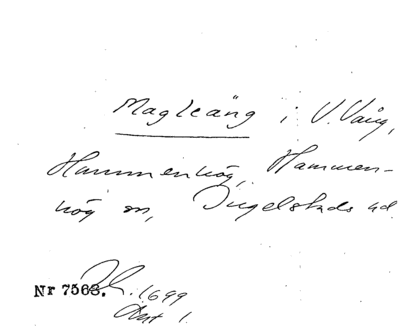 Magleäng i V. Vång,
Hammenhög, Hammen-
hög sn, Ingelstads hd.
Nr 7563.
1699
Akt 1.